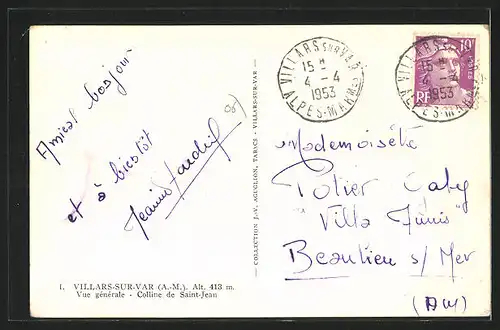 Amical bonjour
et à bientôt
1. VILLARS-SUR-VAR (A.-M.). Alt. 413 m.
Vue générale - Colline de Saint-Jean
COLLECTION J.-V. AGUGLION, TABACS - VILLARS-SUR-VAR -
VILLARS SUR VAR
15 H
4 - 4
1953
ALPES-MARMES
VILLARS
15 H
4 - 4
1953
10F
RF
Mademoiselle
Potier Caty
Villa "Junis"
Beaulieu s/ Mer
(AM)